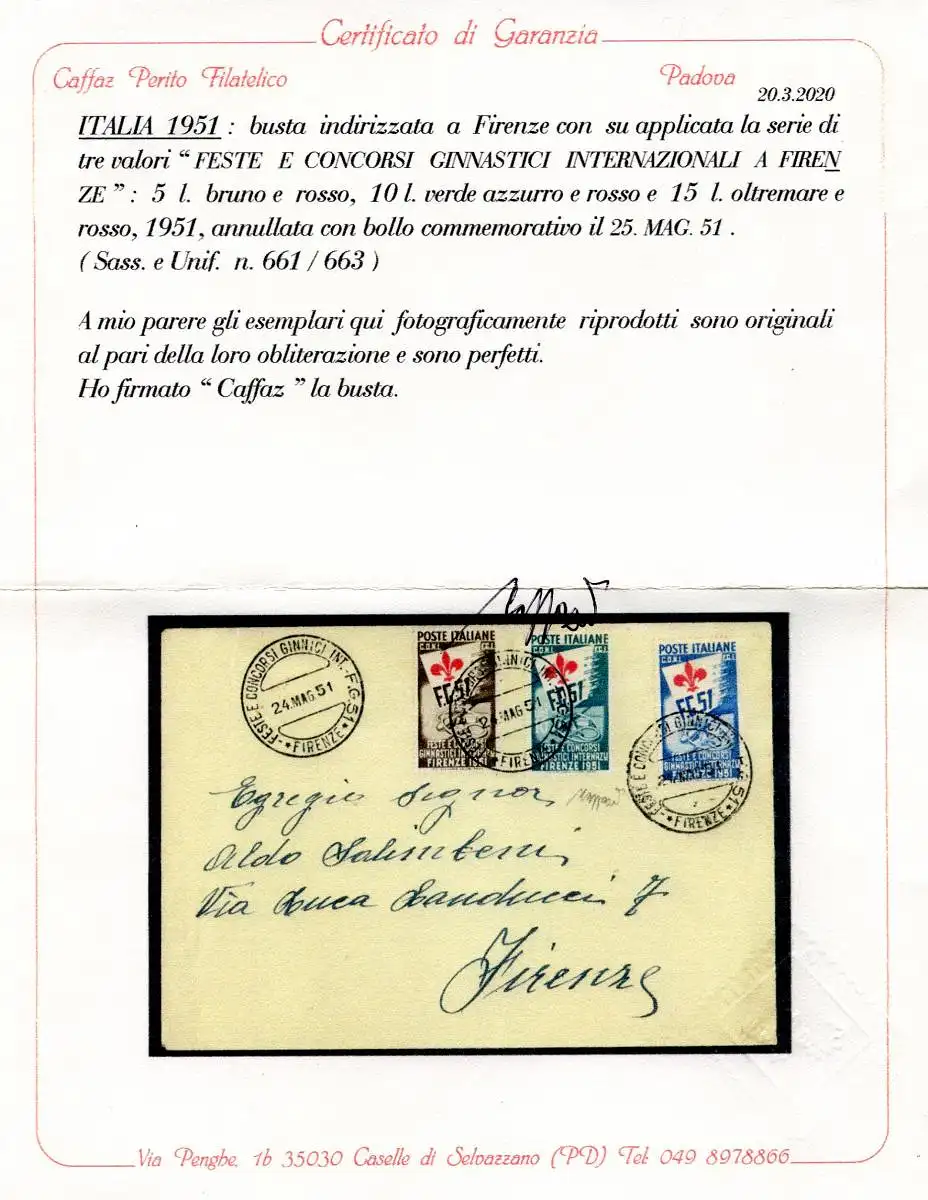 Certificato di Garanzia
Caffaz Perito Filatelico
Padova
20.3.2020
ITALIA 1951 : busta indirizzata a Firenze con su applicata la serie di
tre valori “ FESTE E CONCORSI GINNASTICI INTERNAZIONALI A FIREN
ZE ” : 5 l. bruno e rosso, 10 l. verde azzurro e rosso e 15 l. oltremare e
rosso, 1951, annullata con bollo commemorativo il 25. MAG. 51 .
( Sass. e Unif. n. 661 / 663 )
A mio parere gli esemplari qui fotograficamente riprodotti sono originali
al pari della loro obliterazione e sono perfetti.
Ho firmato “ Caffaz ” la busta.
Caffaz
FESTE E CONCORSI GINNICI INT.-F.G.51
24.MAG.51
* FIRENZE *
POSTE ITALIANE
C.O.N.I. F.G.I.
FESTE E CONCORSI
GINNASTICI INTERNAZ.LI
FIRENZE 1951
POSTE ITALIANE
C.O.N.I. F.G.I.
FESTE E CONCORSI
GINNASTICI INTERNAZ.LI
FIRENZE 1951
POSTE ITALIANE
C.O.N.I.
* FIRENZE *
Egregio Signor
Aldo Salimbeni
Via Luca Landucci 7
Firenze
Via Penghe, 1b 35030 Caselle di Selvazzano (PD) Tel: 049 8978866